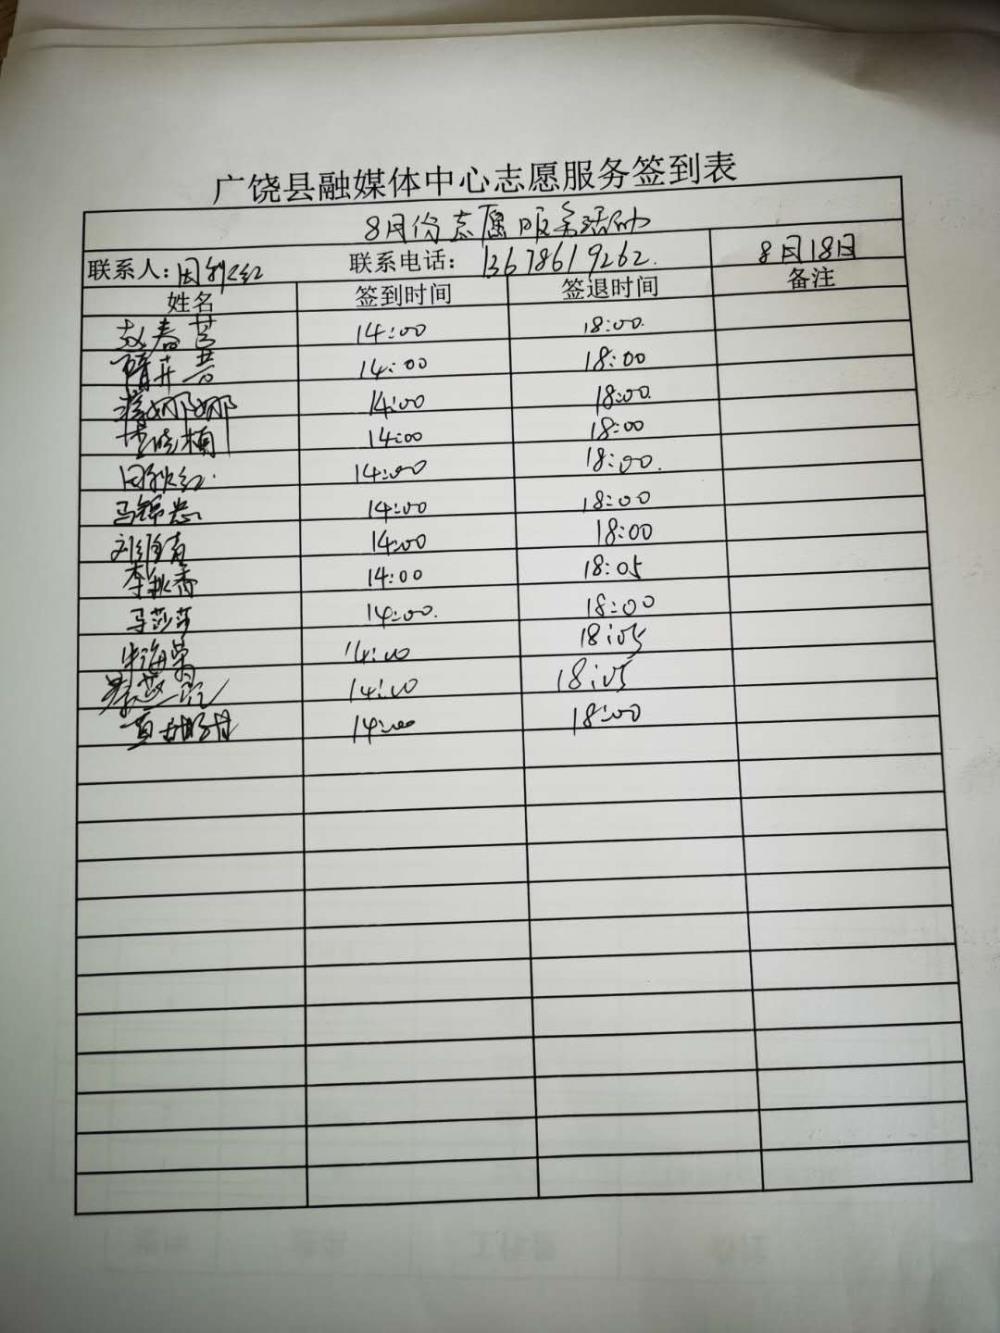 广饶县融媒体中心志愿服务签到表
8月份志愿服务活动
联系人: 联系电话: 13678619262. 8月18日
姓名 签到时间 签退时间 备注
赵春芸 14:00 18:00.
隋卉 14:00 18:00
娜娜 14:00 18:00.
14:00 18:00
14:00 18:00.
马锦 14:00 18:00
刘 14:00 18:00
李秋香 14:00 18:05
马莎莎 14:00. 18:00
朱海荣 14:00 18:05
14:00 18:05
14:00 18:00